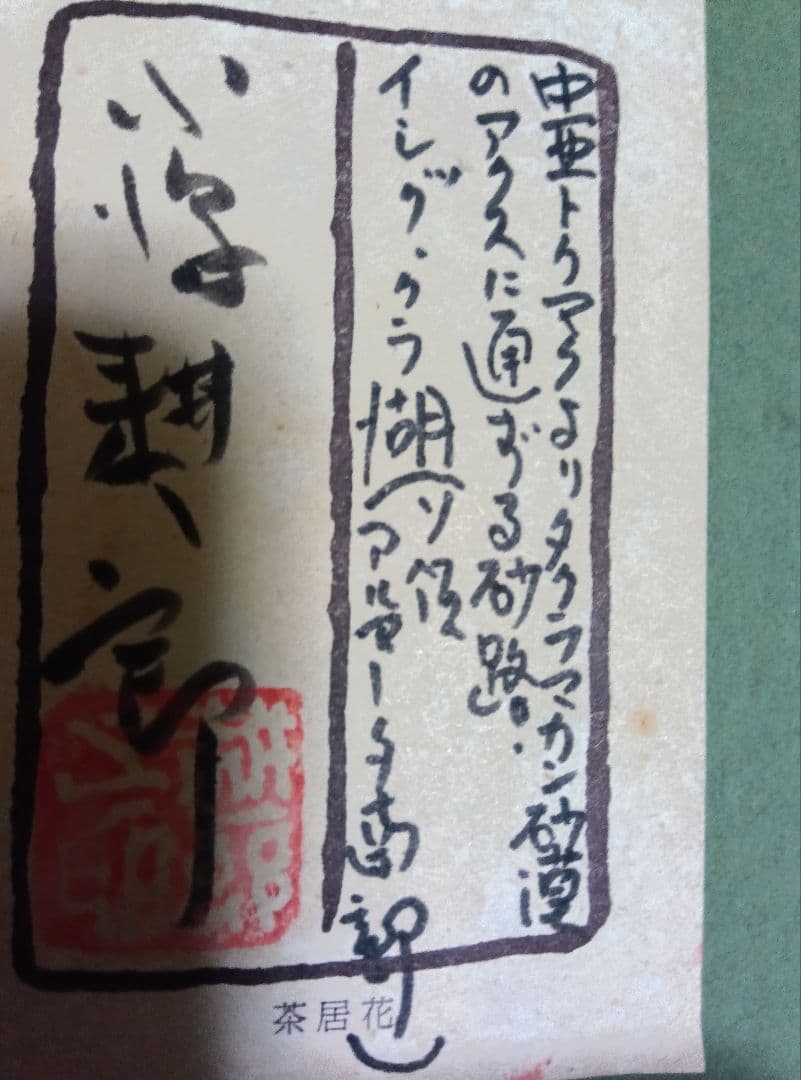 中亜トクマクよりタクラマカン砂漠
のアクスに通ずる砂路。
イシク、クラ湖(ソ領
アルマータ南部)
小 耕一郎
花居茶